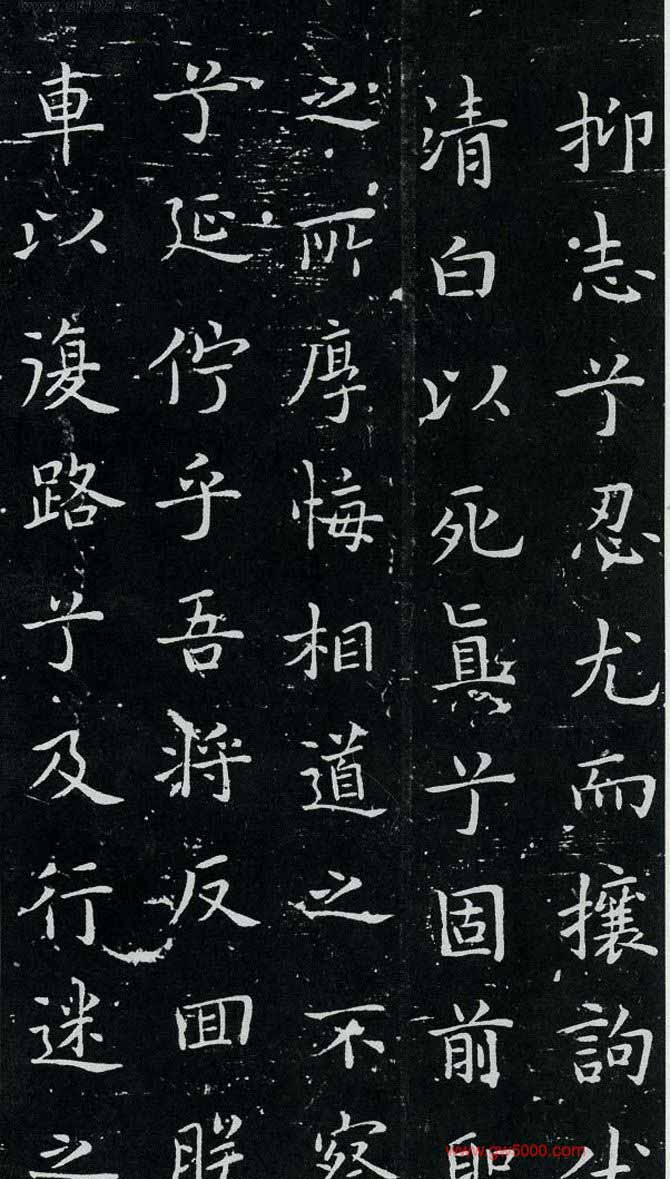 抑志兮忍尤而攘訽伏
清白以死直兮固前聖
之所厚悔相道之不察
兮延佇乎吾將反回朕
車以復路兮及行迷之
www.gw5000.com